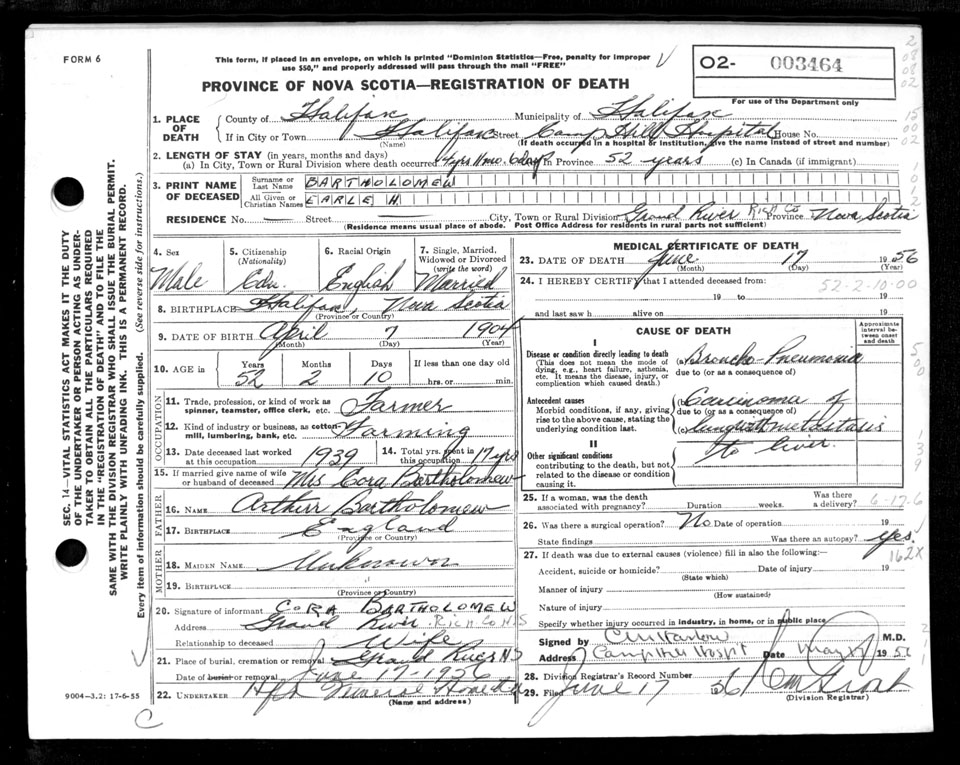 FORM 6
This form, if placed in an envelope, on which is printed "Dominion Statistics—Free, penalty for improper
use $50," and properly addressed will pass through the mail "FREE"
PROVINCE OF NOVA SCOTIA—REGISTRATION OF DEATH
O2- 003464
For use of the Department only
1. PLACE OF DEATH
County of Halifax Municipality of Halifax
If in City or Town Halifax Street Camp Hill Hospital House No.
(Name) (If death occurred in a hospital or institution, give the name instead of street and number)
2. LENGTH OF STAY (in years, months and days)
(a) In City, Town or Rural Division where death occurred 4 yrs 11 mo. 6 days In Province 52 years (c) In Canada (if immigrant)
3. PRINT NAME OF DECEASED
Surname or Last Name BARTHOLOMEW
All Given or Christian Names EARLE H
RESIDENCE No. — Street City, Town or Rural Division Grand River Rich Co Province Nova Scotia
(Residence means usual place of abode. Post Office Address for residents in rural parts not sufficient)
4. Sex
Male
5. Citizenship
(Nationality)
Cdn.
6. Racial Origin
English
7. Single, Married, Widowed or Divorced
(write the word)
Married
8. BIRTHPLACE Halifax, Nova Scotia
(Province or Country)
9. DATE OF BIRTH April 7 1904
(Month) (Day) (Year)
10. AGE in
Years Months Days If less than one day old
52 2 10 hrs. or min.
OCCUPATION
11. Trade, profession, or kind of work as
spinner, teamster, office clerk, etc. Farmer
12. Kind of industry or business, as cotton-
mill, lumbering, bank, etc. Farming
13. Date deceased last worked
at this occupation 1939
14. Total yrs. spent in
this occupation 17 yrs
15. If married give name of wife
or husband of deceased Mrs Cora Bartholomew
FATHER
16. NAME Arthur Bartholomew
17. BIRTHPLACE England
(Province or Country)
MOTHER
18. MAIDEN NAME Unknown
19. BIRTHPLACE "
(Province or Country)
20. Signature of informant CORA BARTHOLOMEW
Address Grand River Rich. Co N.S
Relationship to deceased Wife
21. Place of burial, cremation or removal Grand River NS
Date of burial or removal June 17-1956
22. UNDERTAKER Hfx Funeral Home
(Name and address)
MEDICAL CERTIFICATE OF DEATH
23. DATE OF DEATH June 17 1956
(Month) (Day) (Year)
24. I HEREBY CERTIFY that I attended deceased from:
52-2-10-00
19 to 19
and last saw h alive on 19
CAUSE OF DEATH
Approximate interval between onset and death
I
Disease or condition directly leading to death
(This does not mean the mode of
dying, e.g., heart failure, asthenia,
etc. It means the disease, injury, or
complication which caused death.)
(a) Broncho-Pneumonia
due to (or as a consequence of)
Antecedent causes
Morbid conditions, if any, giving
rise to the above cause, stating the
underlying condition last.
(b) Carcinoma of
due to (or as a consequence of)
(c) lung with metastasis
to liver.
II
Other significant conditions
contributing to the death, but not
related to the disease or condition
causing it.
25. If a woman, was the death
associated with pregnancy? Duration weeks. Was there
a delivery?
6-17-6
26. Was there a surgical operation? No Date of operation 19
State findings Was there an autopsy? Yes.
162X
27. If death was due to external causes (violence) fill in also the following:—
Accident, suicide or homicide? Date of injury 19
(State which)
Manner of injury
(How sustained)
Nature of injury
Specify whether injury occurred in industry, in home, or in public place
Signed by M.D.
Address Camp Hill Hospit Date 19
28. Division Registrar's Record Number
29. Filed June 17 1956
(Division Registrar)
SEC. 14—VITAL STATISTICS ACT MAKES IT THE DUTY
OF THE UNDERTAKER OR PERSON ACTING AS UNDER-
TAKER TO OBTAIN ALL THE PARTICULARS REQUIRED
IN THE "REGISTRATION OF DEATH" AND TO FILE THE
SAME WITH THE DIVISION REGISTRAR WHO SHALL ISSUE THE BURIAL PERMIT.
WRITE PLAINLY WITH UNFADING INK. THIS IS A PERMANENT RECORD.
Every item of information should be carefully supplied. (See reverse side for instructions.)
9004—3.2: 17-6-55
C